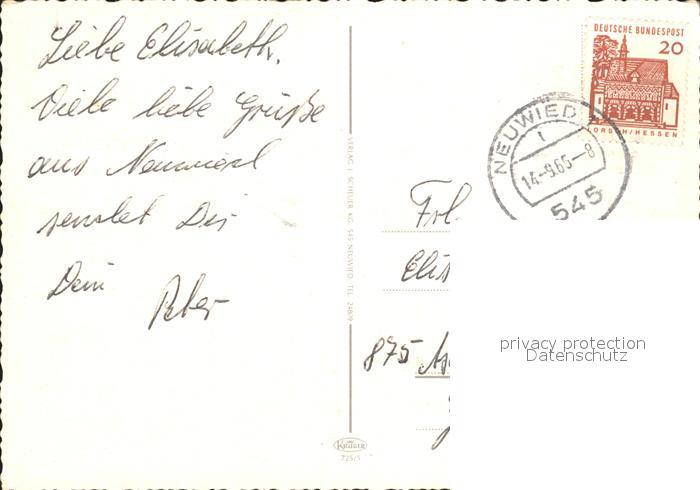 Liebe Elisabeth,
Viele liebe Grüße
aus Neuwied
sendet Dir
Dein
Peter
VERLAG J. SCHEUER KG. 545 NEUWIED TEL. 24809
KRÜGER
725/5
DEUTSCHE BUNDESPOST
20
LORSCH/HESSEN
NEUWIED
1
14-9.65-8
545
Frl.
Elis
875
privacy protection
Datenschutz